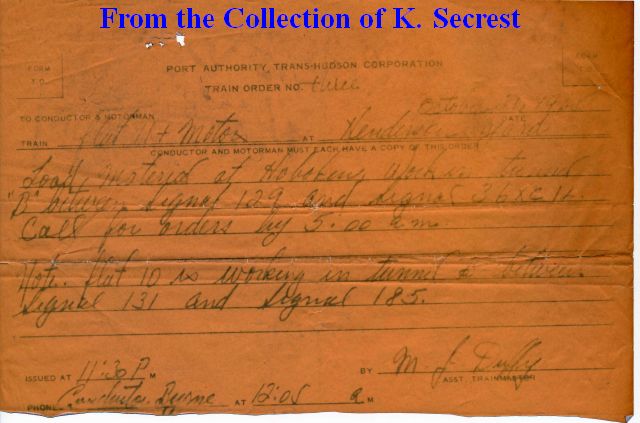 From the Collection of K. Secrest
FORM T.O.
FORM T.O.
PORT AUTHORITY TRANS-HUDSON CORPORATION
TRAIN ORDER NO. three
TO CONDUCTOR & MOTORMAN
DATE
TRAIN Flat 11 & Motor AT Henderson
CONDUCTOR AND MOTORMAN MUST EACH HAVE A COPY OF THIS ORDER
Load material at Hoboken, Work in tunnel
"B" between Signal 129 and Signal
Call for orders by 5:00 a.m.
Note. Flat 10 is working in tunnel between
Signal 131 and Signal 185.
ISSUED AT 11:30 P M BY M. J. Duffy
ASST. TRAINMASTER
PHONE Conductor AT 12:05 a M